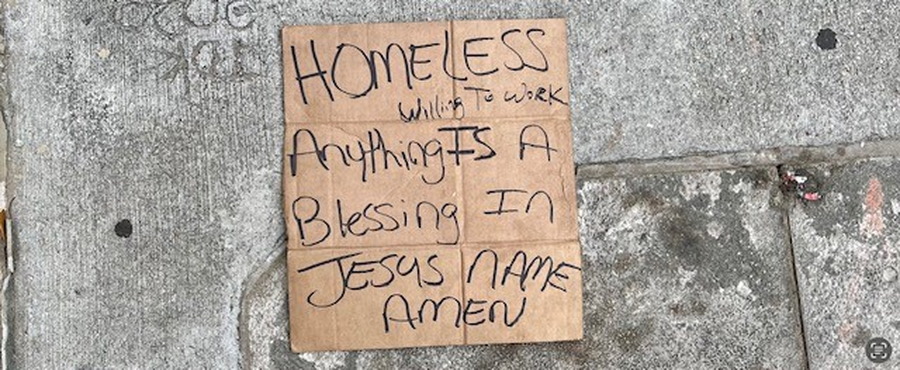 HOMELESS
Willing To WORK
Anything IS A
Blessing In
JESUS NAME
AMEN